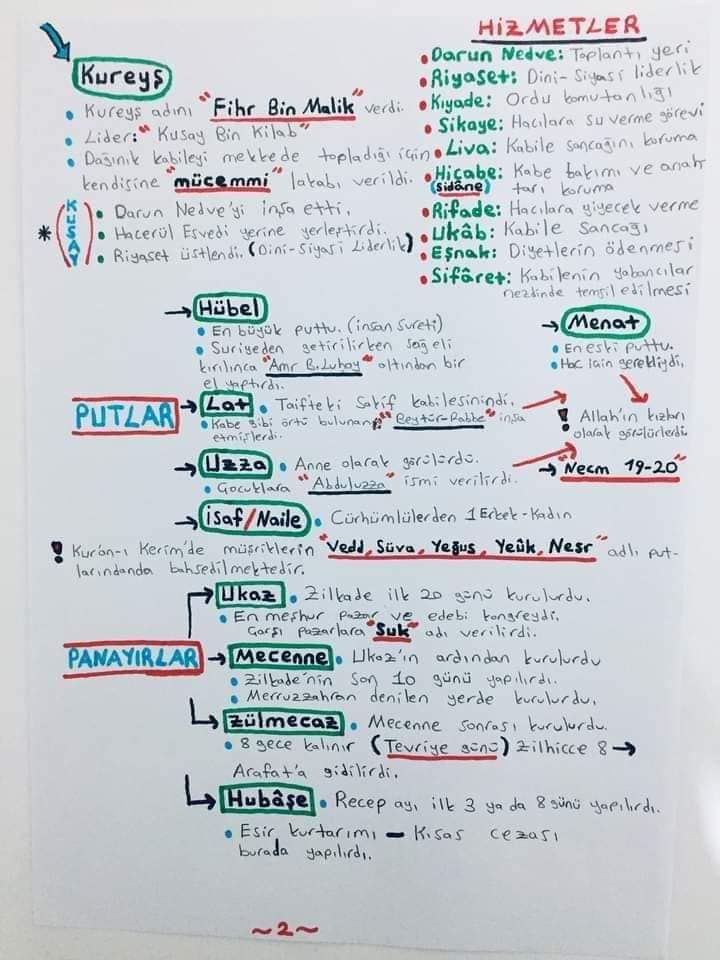 Kureyş
• Kureyş adını "Fihr Bin Malik" verdi.
• Lider: "Kusay Bin Kilab"
• Dağınık kabileyi mekkede topladığı için
kendisine "mücemmi" lakabı verildi.
* (KUSAY)
• Darun Nedve'yi inşa etti.
• Hacerül Esvedi yerine yerleştirdi.
• Riyaset üstlendi. (Dini-Siyasi Liderlik)
HİZMETLER
• Darun Nedve: Toplantı yeri
• Riyaset: Dini-Siyasi liderlik
• Kıyade: Ordu komutanlığı
• Sikaye: Hacılara su verme görevi
• Liva: Kabile sancağını koruma
• Hicabe: Kabe bakımı ve anah
(sidâne) tarı koruma
• Rifade: Hacılara yiyecek verme
• Ukâb: Kabile Sancağı
• Eşnak: Diyetlerin ödenmesi
• Sifâret: Kabilenin yabancılar
nezdinde temsil edilmesi
PUTLAR
→ Hübel
• En büyük puttu. (insan sureti)
• Suriyeden getirilirken sağ eli
kırılınca "Amr B. Luhay" altından bir
el yaptırdı.
→ Lat • Taifteki Sakif kabilesinindi.
• Kabe gibi örtü bulunan "Beytür-Rabbe" inşa
etmişlerdi.
→ Uzza • Anne olarak görülürdü.
• Çocuklara "Abduluzza" ismi verilirdi.
→ İsaf/Naile • Cürhümlülerden 1 Erkek-Kadın
→ Menat
• En eski puttu.
• Hac için gerekliydi.
! Allah'ın kızları
olarak görülürlerdi
→ "Necm 19-20"
! Kurân-ı Kerim'de müşriklerin "Vedd, Süva, Yeğus, Yeûk, Nesr" adlı put-
larındanda bahsedilmektedir.
PANAYIRLAR
→ Ukaz • Zilkade ilk 20 günü kurulurdu.
• En meşhur pazar ve edebi kongreydi.
Çarşı pazarlara "Suk" adı verilirdi.
→ Mecenne • Ukaz'ın ardından kurulurdu
• Zilkade'nin son 10 günü yapılırdı.
• Merruzzahran denilen yerde kurulurdu.
→ Zülmecaz • Mecenne sonrası kurulurdu.
• 8 gece kalınır (Tevriye günü) Zilhicce 8 →
Arafat'a gidilirdi.
→ Hubâşe • Recep ayı ilk 3 ya da 8 günü yapılırdı.
• Esir kurtarımı - Kısas cezası
burada yapılırdı.
~2~